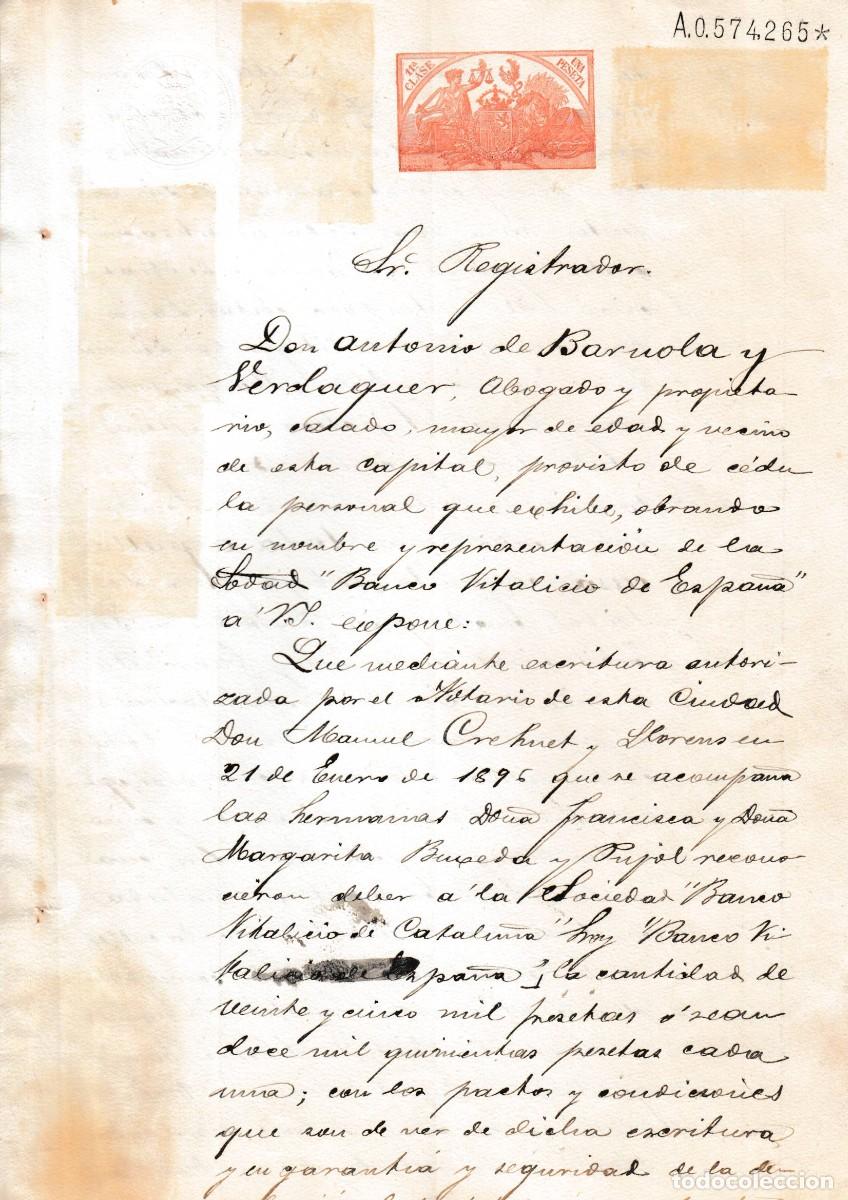 A.0.574.265*
11ª CLASE
UNA PESETA
Sr. Registrador.
Don Antonio de Baruola y
Verdaguer, Abogado y propieta-
rio, casado, mayor de edad y vecino
de esta Capital, provisto de cédu
la personal que exhibe, obrando
en nombre y representación de la
Sodad "Banco Vitalicio de España"
a V.S. expone:
Que mediante escritura autori-
zada por el Notario de esta Ciudad
Don Manuel Crehuet y Llorens en
21 de Enero de 1896 que se acompaña
las hermanas Doña Francisca y Doña
Margarita Buxeda y Pujol recono
cieron deber á la Sociedad "Banco
Vitalicio de Cataluña" hoy "Banco Vi
talicio de España", la cantidad de
veinte y cinco mil pesetas ó sean
doce mil quinientas pesetas cada
una; con los pactos y condiciones
que son de ver de dicha escritura
y en garantiá y seguridad de la de
todocoleccion